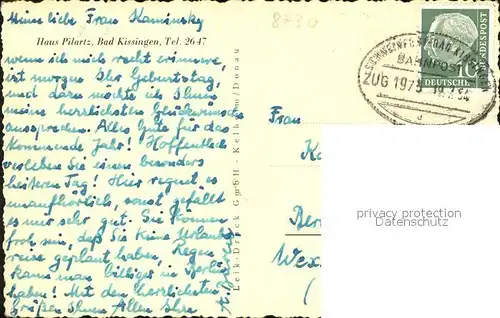 Meine liebe Frau Kaminsky
8730
Haus Pilartz, Bad Kissingen, Tel. 2647
wenn ich mich recht erinnere,
ist morgen Ihr Geburtstag,
und dazu möchte ich Ihnen
meine herzlichsten Glückwünsche
aussprechen. Alles Gute für das
kommende Jahr! Hoffentlich
verleben Sie einen besonders
heiteren Tag! Hier regnet es
unaufhörlich, sonst gefällt
es mir sehr gut. Sie können
froh sein, daß Sie keine Urlaubs
reise geplant haben, Regen
kann man billiger in Berlin
haben! Mit den herzlichsten
Grüßen Ihnen Allen Ihre
Leik-Druck GmbH - Kelheim/Donau
BAHNPOST
ZUG 1973
DEUTSCHE
BUNDESPOST
10
Frau
Ka
Ber
Wex
(
privacy protection
Datenschutz